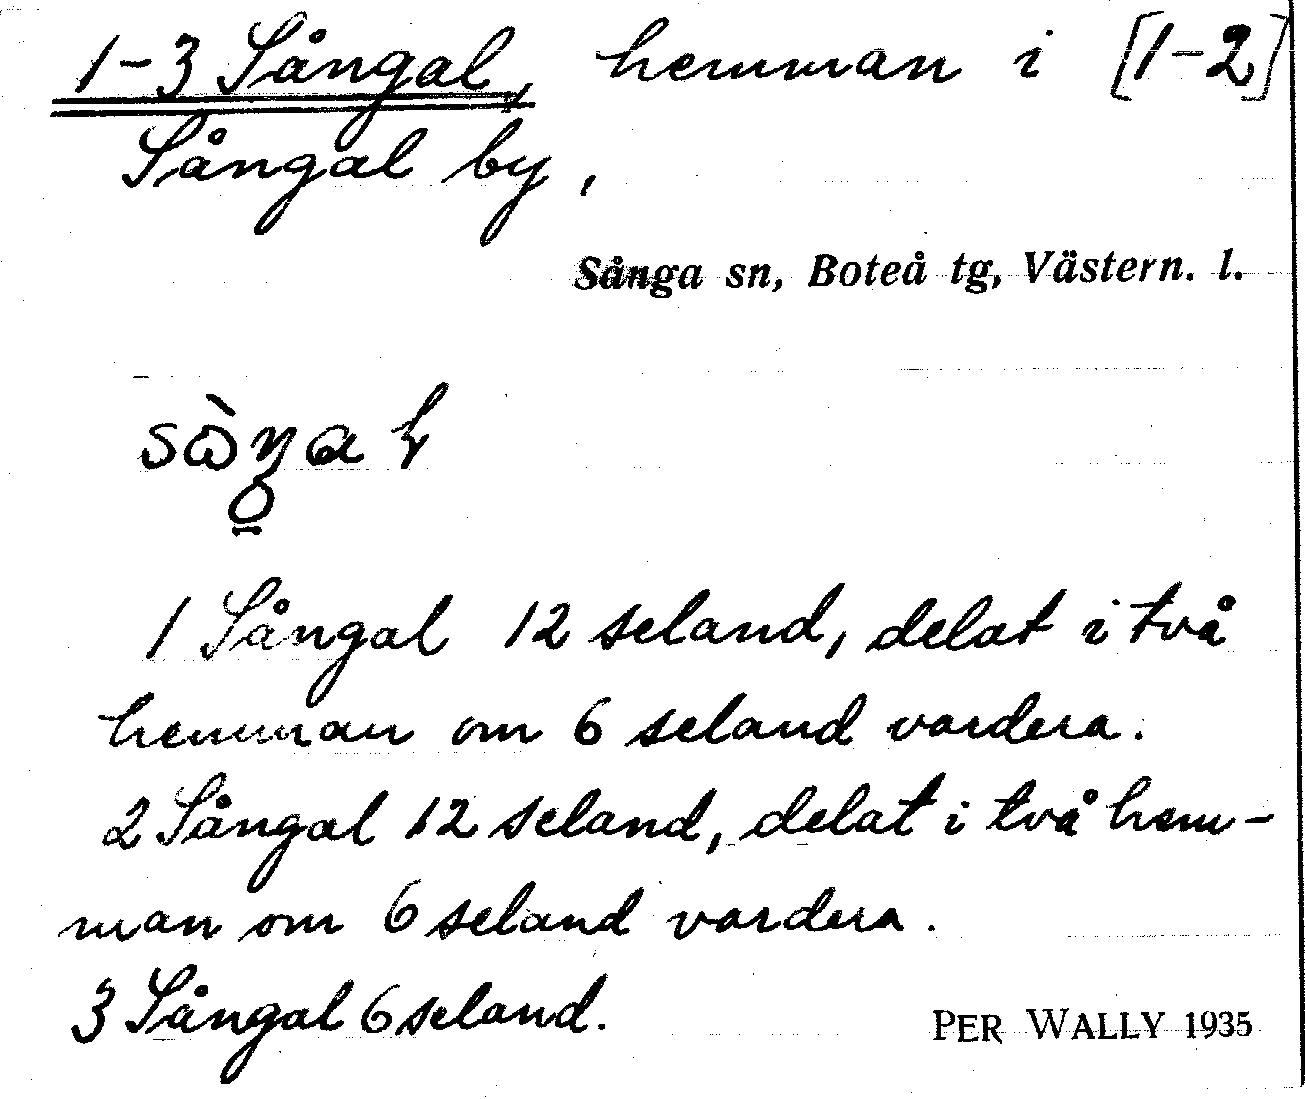 1-3 Sångal, hemman i [1-2]
Sångal by,
Sånga sn, Boteå tg, Västern. l.
1 Sångal 12 seland, delat i två
hemman om 6 seland vardera.
2 Sångal 12 seland, delat i två hem-
man om 6 seland vardera.
3 Sångal 6 seland.
PER WALLY 1935